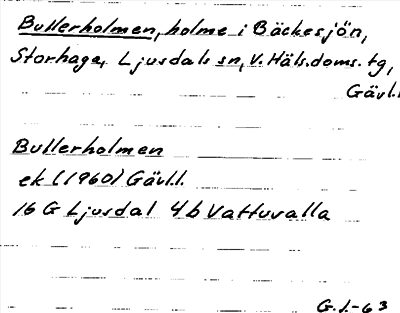 Bullerholmen, holme i Bäckesjön,
Storhaga, Ljusdals sn, V. Häls. doms. tg,
Gävl.l.
Bullerholmen
ek (1960) Gävl.l.
16 G Ljusdal 4b Vattuvalla
G.J.-63